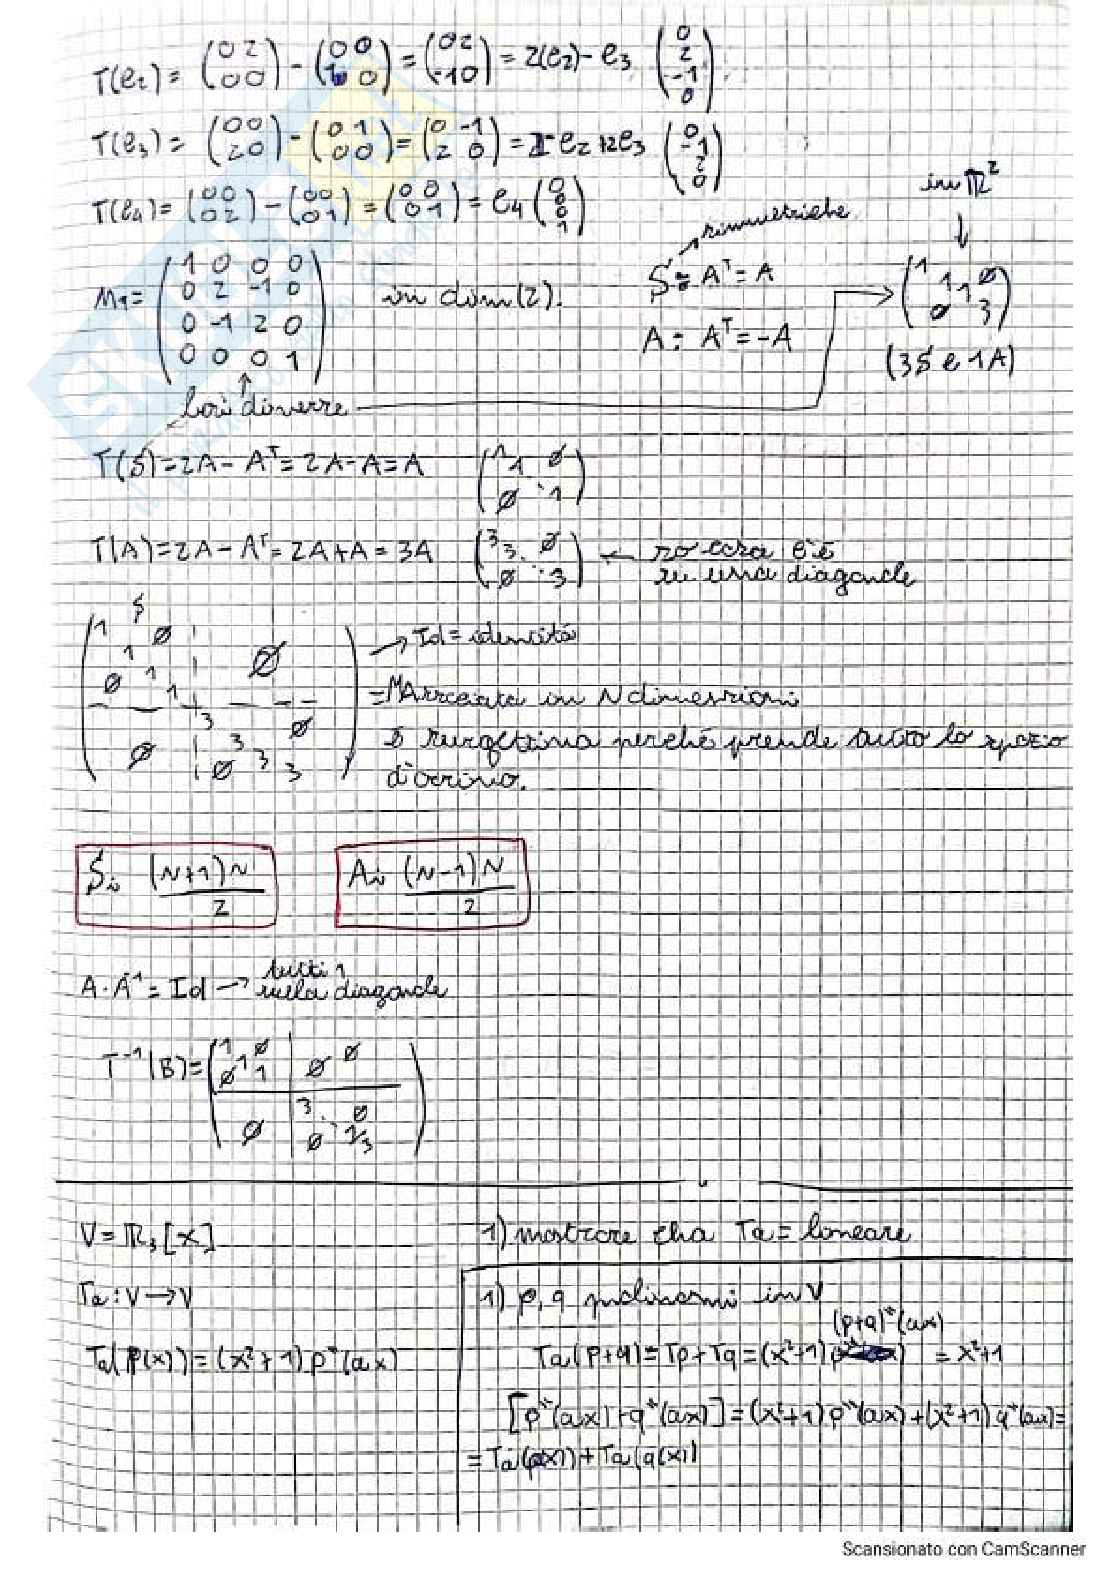 T(e₂) = (0 2 / 0 0) - (0 0 / 1 0) = (0 2 / -1 0) = 2(e₂) - e₃ (0 / 2 / -1 / 0)
T(e₃) = (0 0 / 2 0) - (0 1 / 0 0) = (0 -1 / 2 0) = - e₂ + 2e₃ (0 / -1 / 2 / 0)
T(e₄) = (0 0 / 0 2) - (0 0 / 0 1) = (0 0 / 0 1) = e₄ (0 / 0 / 0 / 1)
in ℝ²
simmetriche
M₁ = (1 0 0 0 / 0 2 -1 0 / 0 -1 2 0 / 0 0 0 1) in dim(2).
S = Aᵀ = A
A : Aᵀ = -A
(1 1 1 ∅ / ∅ 3)
(3S e 1A)
basi diverse
T(S) = 2A - Aᵀ = 2A - A = A (1 1 ∅ / ∅ 1)
T(A) = 2A - Aᵀ = 2A + A = 3A (3 3 ∅ / ∅ 3) ← so cosa c'è
su una diagonale
S
(1 1 1 1 ∅ ∅ / ∅ 3 3 3 3 ∅)
→ Id = identità
= MA in N dimensioni
è surgettiva perché prende tutto lo spazio
d'arrivo.
S: (N+1)N / 2
A: (N-1)N / 2
A · A⁻¹ = Id → tutti 1
sulla diagonale
T⁻¹(B) = (1 ∅ ∅ 1 1 | ∅ ∅ / ∅ | 3 ∅ ∅ 1/3)
V = ℝ₃[x]
Ta : V → V
Ta(p(x)) = (x²+1) p''(ax)
1) mostrare che Ta = lineare
1) p, q polinomi in V
(p+q)''(ax)
Ta(p+q) = Tp + Tq = (x²+1) = x²+1
[p''(ax) + q''(ax)] = (x²+1) p''(ax) + (x²+1) q''(ax) =
= Ta(p(x)) + Ta(q(x))
Scansionato con CamScanner